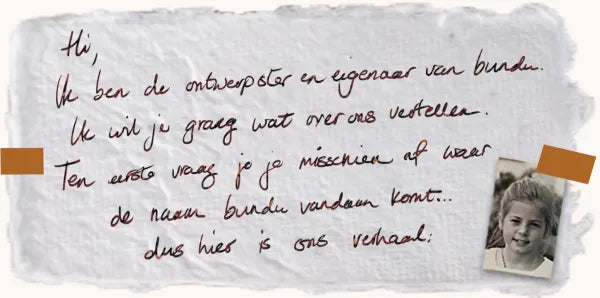 Hi,
Ik ben de ontwerpster en eigenaar van bundu.
Ik wil je graag wat over ons vertellen.
Ten eerste vraag je je misschien af waar
de naam bundu vandaan komt...
dus hier is ons verhaal: